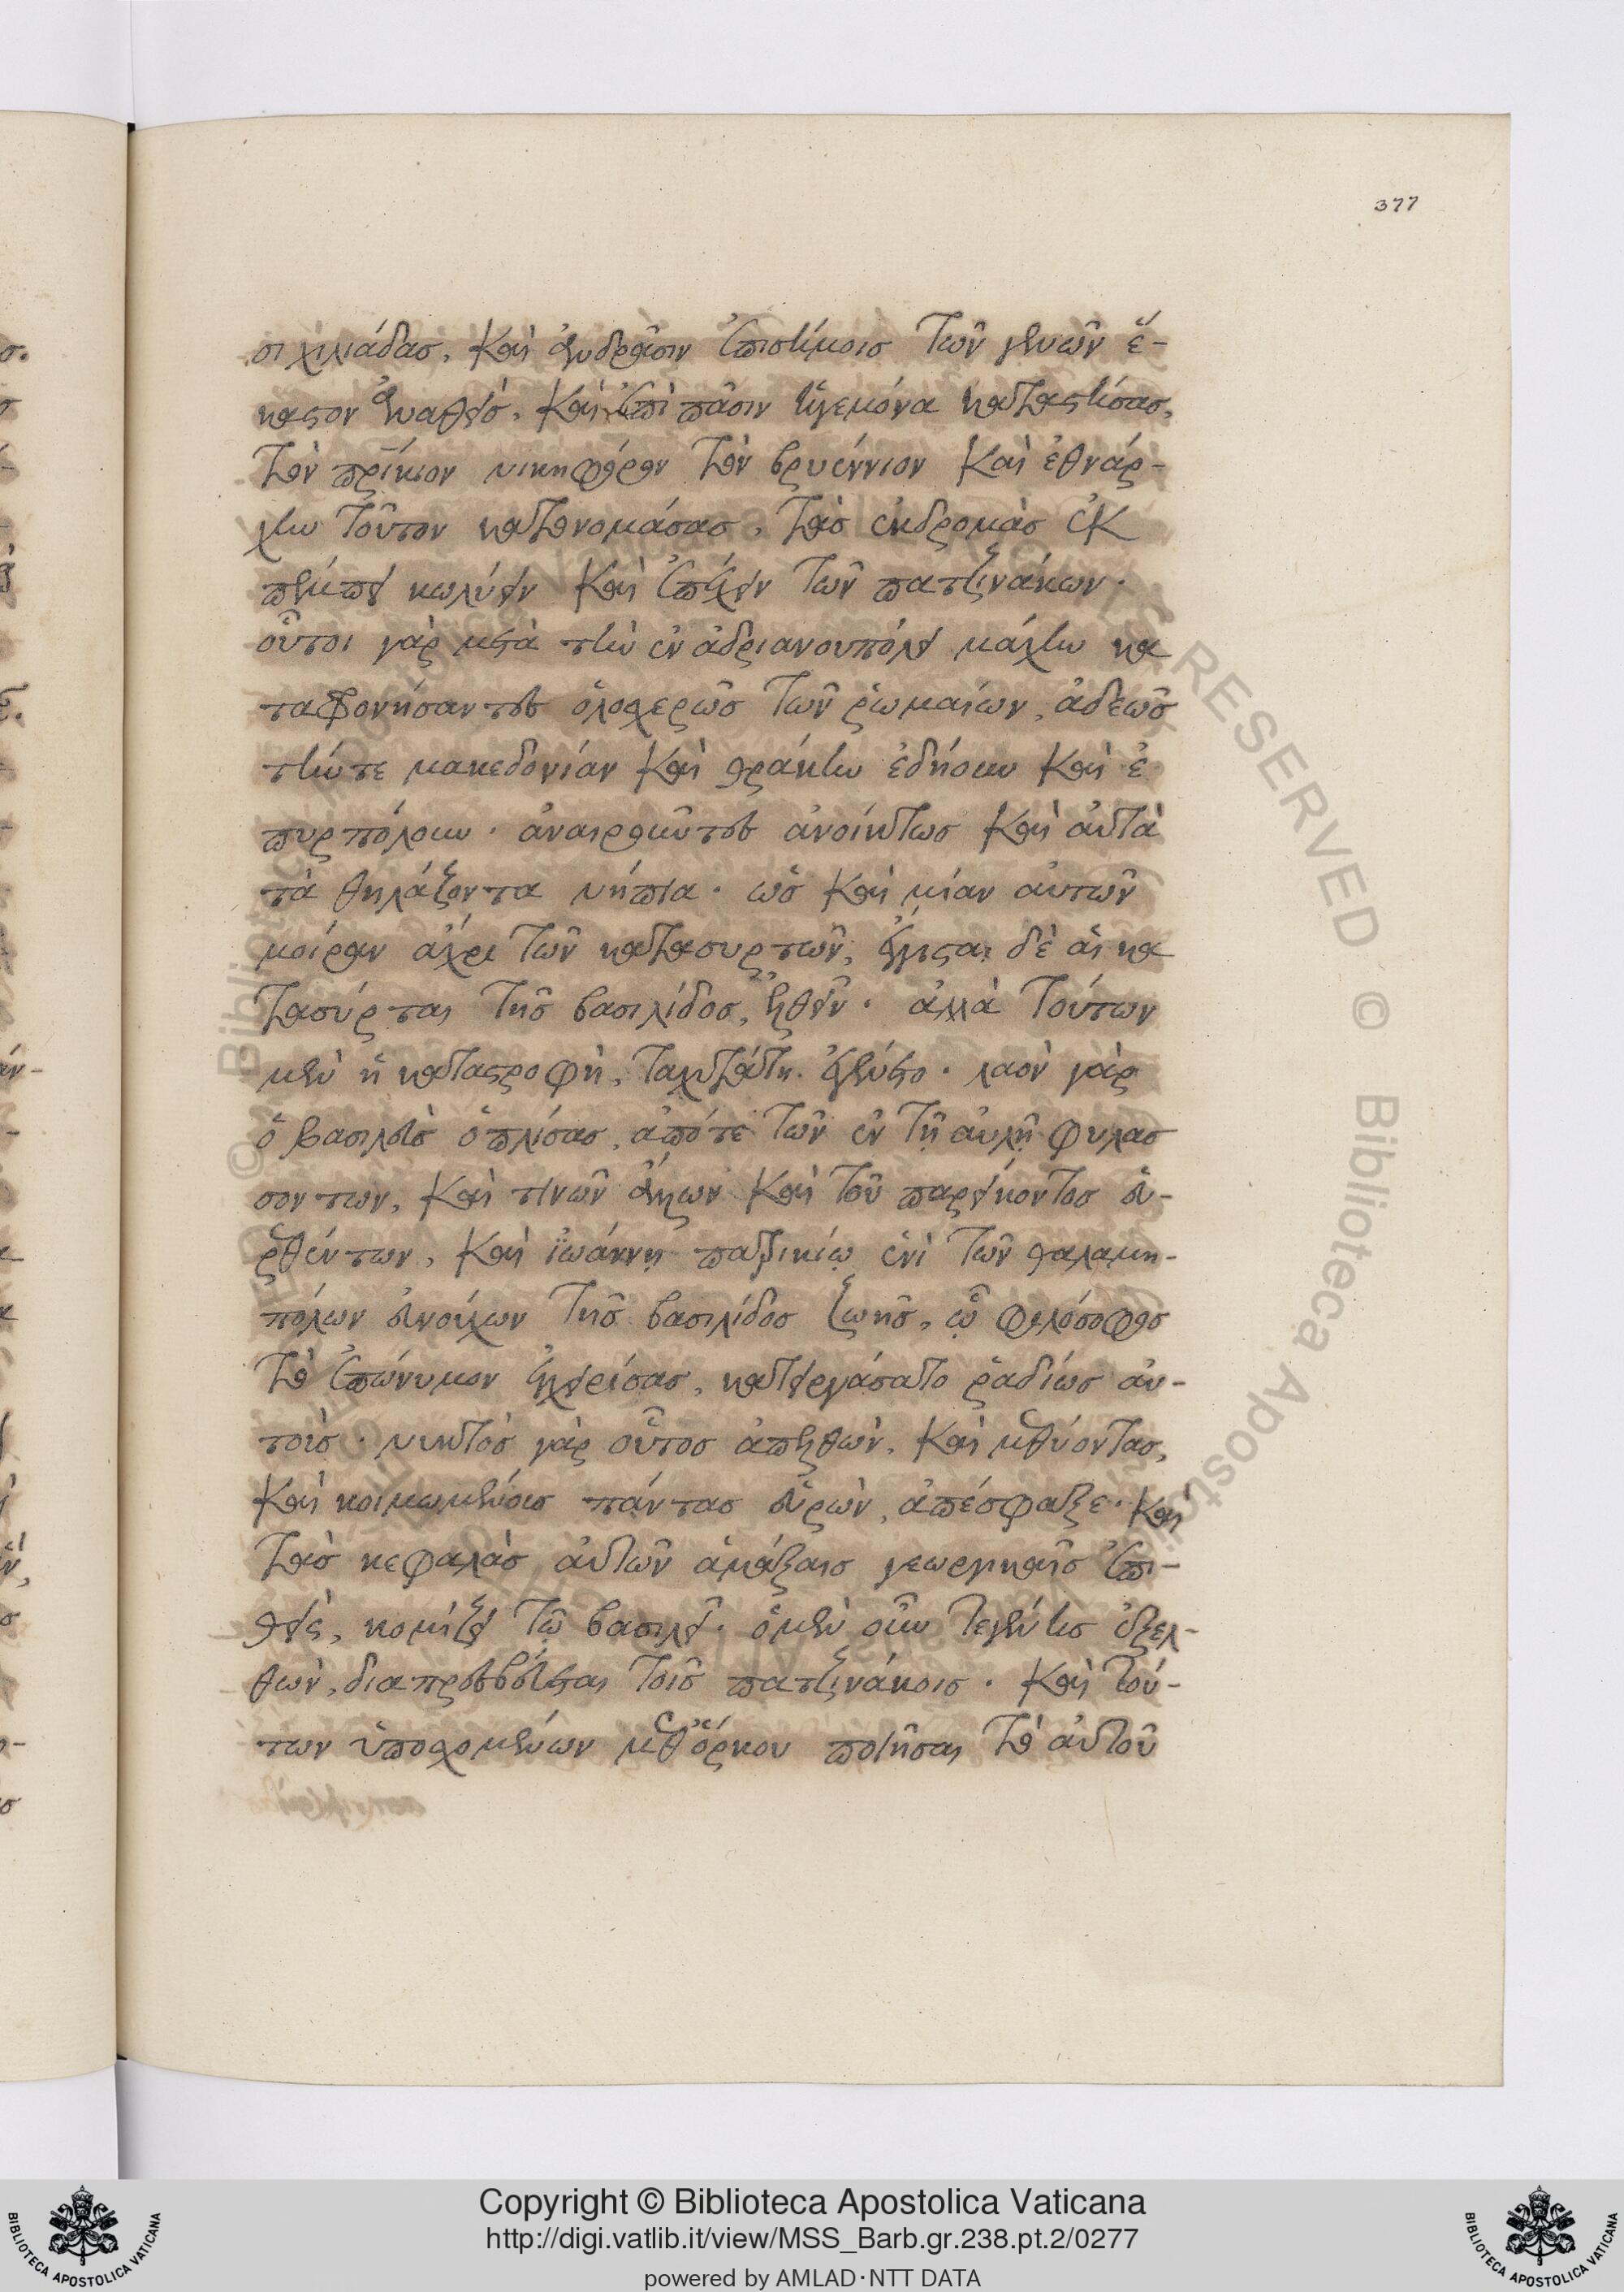 377
σι χιλιάδας, καὶ ἀνδράσιν ἐπισήμοις τῶν γενῶν ἕ-
καστον ἀναθεὶς, καὶ ἐπὶ πᾶσιν ἡγεμόνα καταστήσας,
τὸν πρίκιον νικηφόρον τὸν βρυέννιον καὶ ἐθνάρ-
χην τοῦτον κατονομάσας, τὰς ἐκδρομὰς ἐκ
πέμπει κωλύειν καὶ ἐπέχειν τῶν πατζινάκων.
οὗτοι γὰρ μετὰ τὴν ἐν ἀδριανουπόλει μάχην κα
ταφρονήσαντες ὁλοσχερῶς τῶν ῥωμαίων, ἀδεῶς
τήν τε μακεδονίαν καὶ θράκην ἐδήουν καὶ ἐ
πυρπόλουν. ἀναιροῦντες ἀνοίκτως καὶ αὐτὰ
τὰ θηλάζοντα νήπια. ὡς καὶ μίαν αὐτῶν
μοίραν ἄχρι τῶν κατασυρτῶν, ἔγγιστα δὲ αἱ κα
τασύρται τῆς βασιλίδος, ἐλθεῖν. ἀλλὰ τούτων
μὲν ἡ καταστροφὴ, ταχυτάτη ἐγένετο. λαὸν γὰρ
ὁ βασιλεὺς ὁπλίσας, ἀπό τε τῶν ἐν τῇ αὐλῇ φυλασ
σόντων, καὶ τινῶν ἄλλων καὶ τοῦ παρείκοντος εὑ-
ρεθέντων, καὶ ἰωάννῃ πατρικίῳ ἑνὶ τῶν θαλαμη-
πόλων εὐνούχων τῆς βασιλίδος ζωῆς, ᾧ φιλόσοφος
τὸ ἐπώνυμον ἐγχειρίσας, κατειργάσατο ῥαδίως αὐ-
τοὺς. νυκτὸς γὰρ οὗτος ἀπελθὼν, καὶ μεθύοντας,
καὶ κοιμωμένους πάντας εὑρὼν, ἀπέσφαξε. καὶ
τὰς κεφαλὰς αὐτῶν ἁμάξαις γεωργικαῖς ἐπι-
θεὶς, κομίζει τῷ βασιλεῖ. ὁ μὲν οὖν κεγένης ἐξελ-
θὼν, διαπρεσβεύεται τοῖς πατζινάκοις. καὶ τού-
των ὑποσχομένων μεθ' ὅρκου ποιῆσαι τὸ αὐτοῦ
Copyright © Biblioteca Apostolica Vaticana
http://digi.vatlib.it/view/MSS_Barb.gr.238.pt.2/0277
powered by AMLAD·NTT DATA
BIBLIOTECA APOSTOLICA VATICANA
BIBLIOTECA APOSTOLICA VATICANA